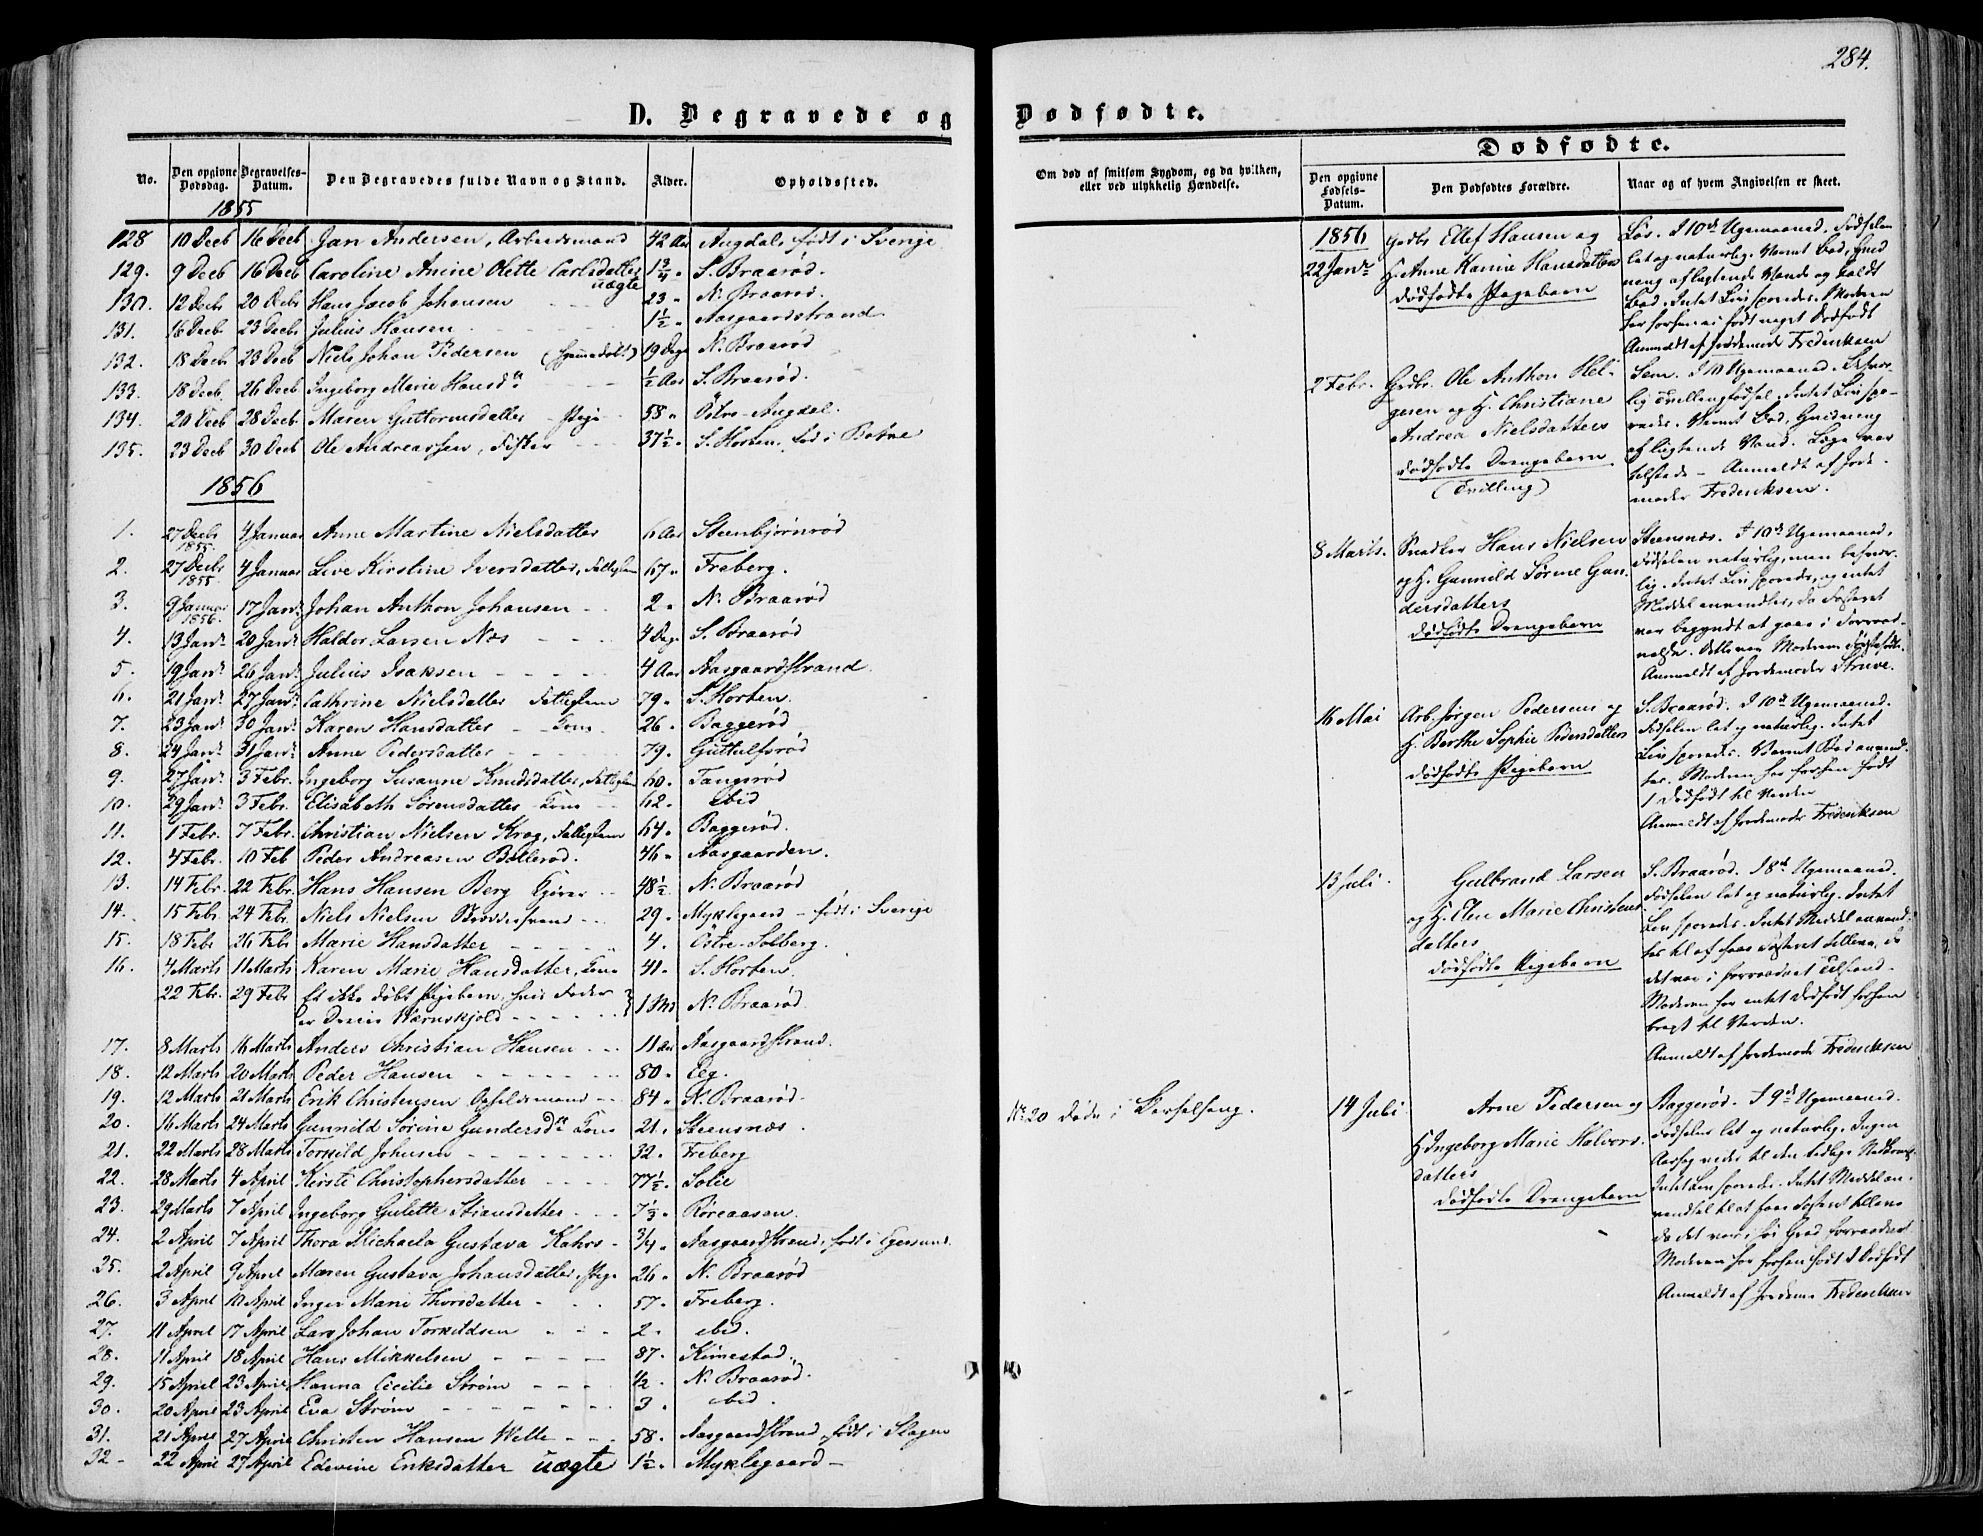 284.
D. Begravede og Dødfødte.
Dødfødte.
No.
Den opgivne Dødsdag.
Begravelses-Datum.
Den Begravedes fulde Navn og Stand.
Alder.
Opholdssted.
Om død af smitsom Sygdom, og da hvilken,
eller ved ulykkelig Hændelse.
Den opgivne Fødsels-Datum.
Den Dødfødtes Forældre.
Naar og af hvem Angivelsen er skeet.
1855
128 10 Decb 16 Decb Jan Andersen, Arbeidsmand 42 Aar Augdal, født i Sverige
129. 9 Decb 16 Decb Caroline Anine Olette Carlsdatter 1 3/4 " S. Braarød.
uægte
130. 12 Decb 20 Decb Hans Jacob Johansen 23 " N. Braarød.
131. 16 Decb 23 Decb Julius Hansen 1 1/2 " Aasgaardstrand
132. 18 Decb 23 Decb Niels Johan Pedersen (hjemmedøbt) 19 Dage N. Braarød
133. 18 Decb 26 Decb Ingeborg Marie Hansd. 1/2 Aar S. Braarød.
134. 20 Decb 28 Decb Maren Guttormsdatter Pige 58 " Östre-Augdal.
135. 23 Decb 30 Decb Ole Andreassen, Fisker 37 1/2 " S. Horten, fød i Botne
1856
1. 27 Decb 1855. 4 Januar Anne Martine Nielsdatter 6 Aar Steenbjørnrød
2. 27 Decb 1855. 4 Januar Live Kirstine Iversdatter, Fattiglem 67 " Freberg.
3. 9 Januar 1856. 17 Jan. Johan Anthon Johansen 2 " N. Braarød
4. 13 Jan. 20 Jan. Halder Larsen Næs 4 Dage S. Braarød
5. 19 Jan. 26 Jan. Julius Isaksen 4 Aar Aasgaardstrand.
6. 21 Jan. 27 Jan. Cathrine Nielsdatter Fattiglem 79 " S. Horten.
7. 23 Jan. 30 Jan. Karen Hansdatter Kone 26 " Baggerød
8. 24 Jan. 31 Jan. Anne Pedersdatter 79 " Guttulfsrød
9. 27 Jan. 3 Febr. Ingeborg Susanne Knudsdatter, Fattiglem 60 " Tangsrød
10. 29 Jan. 3 Febr. Elisabeth Sørensdatter Kone 62 " ibid
11. 1 Febr. 7 Febr. Christian Nielsen Krog, Fattiglem 64 " Baggerød.
12. 4 Febr. 10 Feb Peder Andreasen Bøllerød. 46 " Aasgaarden.
13. 14 Febr. 22 Febr. Hans Hansen Berg 48 1/2 " N. Braarød
14. 15 Febr. 24 Febr. Niels Nielsen 29 " Myklegaard - født i Sverige
15. 18 Febr 26 Febr Marie Hansdatter 4 " Östre-Solberg.
16. 4 Marts 11 Marts Karen Marie Hansdatter, Kone 41 " S. Horten.
22 Febr. 29 Febr Et ikke døbt Pigebarn, hvis Fader
er Wærnskjold 1 Md N. Braarød
17. 8 Marts 16 Marts Anders Christian Hansen 11 Aar Aasgaardstrand.
18. 12 Marts 20 Marts Peder Hansen 80 " Eeg.
19. 12 Marts 21 Marts Erik Christensen Opsidder 84 " N. Braarød.
20. 16 Marts 24 Marts Gunnild Sörine Gundersd. Kone 21 " Steensnæs.
21. 22 Marts 28 Marts Torkild Johnsen 32 " Freberg
22. 28 Marts 4 April Kirsti Christophersdatter 77 1/2 " Solie
23. 29 Marts 7 April Ingeborg Gulette Stiansdatter 7 1/3 " Röreaasen.
24. 2 April 7 April Thora Michaela Gustava Kahrs 3/4 " Aasgaardstrand, født i Egersund.
25. 2 April 9 April Maren Gustava Johansdatter, Pige 26 " N. Braarød
26. 3 April 10 April Inger Marie Thorsdatter 57 " Freberg.
27. 11 April 17 April Lars Johan Torkildsen 2 " ibid.
28. 11 April 18 April Hans Mikkelsen 87 " Kimestad.
29. 15 April 23 April Hanna Cecilie Strøm 1/2 " N. Braarød.
30. 20 April 23 April Eva Strøm 3 " ibid.
31. 21 April 27 April Christen Hansen Welle 58 " Aasgaardstrand, født i Slagen
32 22 April 27 April Edevine Eriksdatter uægte 1 1/2 " Myklegaard
No 20 døde i Barselseng.
1856
22 Janr Grdbr. Ellef Hansen og
H. Anne Karine Hansdatters
dødfødte Pigebarn
I 10de Ugemaaned. Fødselen
let og naturlig. Varmt Bad, Gnid
ning af lugtende Vande og koldt
Bad. Intet Liv sporedes. Moderen
har forhen ei født noget Dødfødt
Anmeldt af Jordemoder Frederiksen
2 Febr. Grdbr. Ole Anthon Hel-
gesen og H. Christiane
Andrea Nielsdatters
dødfødte Drengebarn
(Tvilling)
Sem. I 10 Ugemaaned. Besvær-
lig Tvillingfødsel. Intet Liv spo-
redes. Varmt Bad, Gnidning
af lugtende Vand. Læge var
tilstede - Anmeldt af Jorde-
moder Frederiksen.
8 Marts. Snedker Hans Nielsen
og H. Gunnild Sørine Gun-
dersdatters
dødfødte Drengebarn
Steensnæs. I 10de Ugemaaned,
Fødselen naturlig, men besvær-
lig. Intet Liv sporedes, og intet
Middel anvendtes, da Fosteret
var begyndt at gaae i Forraad-
nelse. Dette var Moderens Første fødte.
Anmeldt af Jordemoder Struve.
16 Mai Arb. Jörgen Pedersens og
H. Berthe Sophie Pedersdatters
dødfødte Pigebarn
S. Braarød. I 10de Ugemaaned.
Fødselen let og naturlig. Intet
Liv sporedes. Varmt Bad anvend-
tes. Moderen har forhen født
1 Dødfødt til Verden
Anmeldt af Jordemoder Frederiksen
13 Juli. Gulbrand Larsen
og H. Elen Marie Christens
datters
dødfødte Pigebarn
S. Braarød. I 8de Ugemaaned.
Fødselen let og naturlig. Intet
Liv sporedes. Intet Middel anvend-
tes til at faae Fosteret tillive, da
det var i forraadnet Tilstand.
Moderen har intet Dødfødt forhen
bragt til Verden.
Anmeldt af Jordemoder Frederiksen
14 Juli Arne Pedersen og
H. Ingeborg Marie Halvors-
datters
dødfødte Drengebarn
Baggerød. I 9de Ugemaaned.
Fødselen let og naturlig. Ingen
Aarsag vides til den tidlige Nedkomst
Intet Liv sporedes. Intet Middel an-
vendtes til at faae Fosteret tillive
da det var i høi Grad forraadnet
Moderen har forhen født 2 Dødfødt
Anmeldt af Jordem. Frederiksen